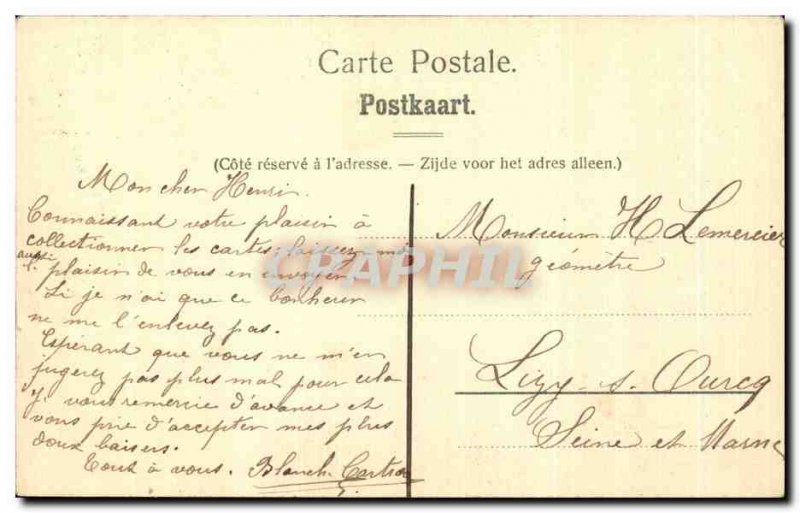 Carte Postale.
Postkaart.
(Côté réservé à l'adresse. — Zijde voor het adres alleen.)
Mon cher Henri.
Connaissant votre plaisir à
collectionner les cartes laissez moi
aussi l.
plaisir de vous en envoyer.
Si je n'ai que ce bonheur
ne me l'enlevez pas.
Espérant que vous ne m'en
jugerez pas plus mal pour cela
Je vous remercie d'avance et
vous prie d'accepter mes plus
doux baisers.
Tout à vous. Blanch.
Monsieur H Lemercier
géomètre
Lizy-s-Ourcq
Seine et Marne
CPAPHIL